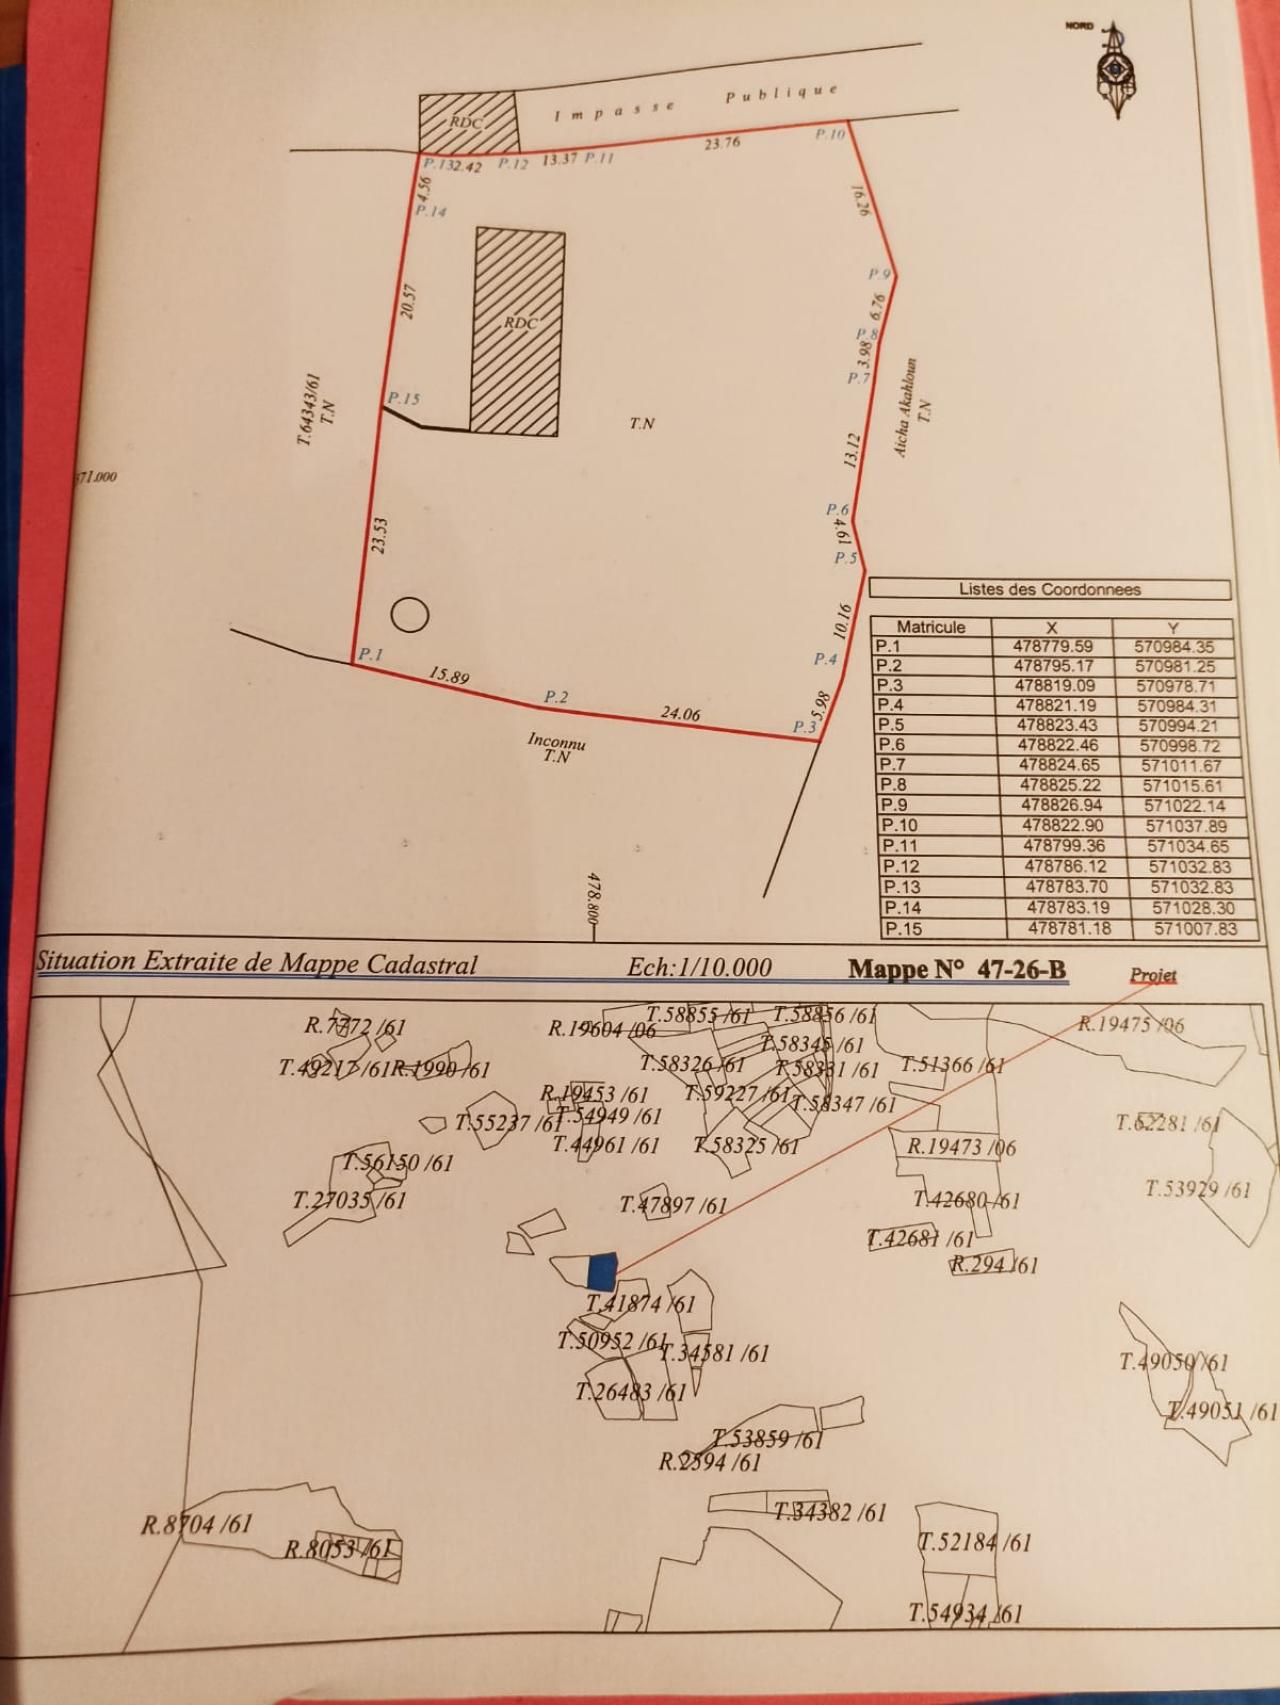 NORD
Impasse Publique
RDC
P.10
P.13
2.42
P.12
13.37
P.11
23.76
4.56
P.14
16.26
P.9
20.57
6.76
RDC
P.8
3.98
P.7
T.64343/61
T.N
P.15
T.N
Aicha Akahloun
T.N
13.12
71.000
P.6
4.61
23.53
P.5
10.16
P.1
P.4
15.89
P.2
24.06
5.98
P.3
Inconnu
T.N
478.800
Listes des Coordonnees
Matricule X Y
P.1 478779.59 570984.35
P.2 478795.17 570981.25
P.3 478819.09 570978.71
P.4 478821.19 570984.31
P.5 478823.43 570994.21
P.6 478822.46 570998.72
P.7 478824.65 571011.67
P.8 478825.22 571015.61
P.9 478826.94 571022.14
P.10 478822.90 571037.89
P.11 478799.36 571034.65
P.12 478786.12 571032.83
P.13 478783.70 571032.83
P.14 478783.19 571028.30
P.15 478781.18 571007.83
Situation Extraite de Mappe Cadastral Ech:1/10.000 Mappe N° 47-26-B Projet
R.7772 /61
R.19604 /06
T.58855 /61
T.58856 /61
R.19475 /06
T.58345 /61
T.49217 /61
R.1990 /61
T.58326 /61
T.58331 /61
T.51366 /61
R.19453 /61
T.59227 /61
T.58347 /61
T.55237 /61
T.54949 /61
T.62281 /61
T.44961 /61
T.58325 /61
R.19473 /06
T.56150 /61
T.27035 /61
T.47897 /61
T.42680 /61
T.53929 /61
T.42681 /61
R.294 /61
T.41874 /61
T.50952 /61
T.34581 /61
T.49050 /61
T.26483 /61
T.49051 /61
T.53859 /61
R.2594 /61
T.34382 /61
R.8704 /61
R.8053 /61
T.52184 /61
T.54934 /61